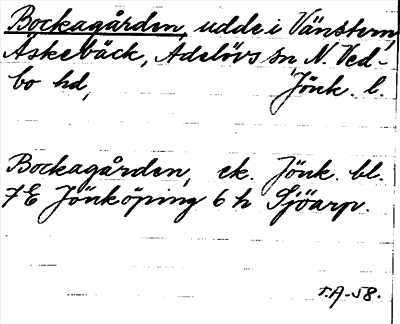 Bockagården, udde i Vänstern,
Askebäck, Adelövs sn N. Ved-
bo hd, Jönk. l.
Bockagården, ek. Jönk. bl.
7E Jönköping 6 h Sjöarp.
T.A-58.